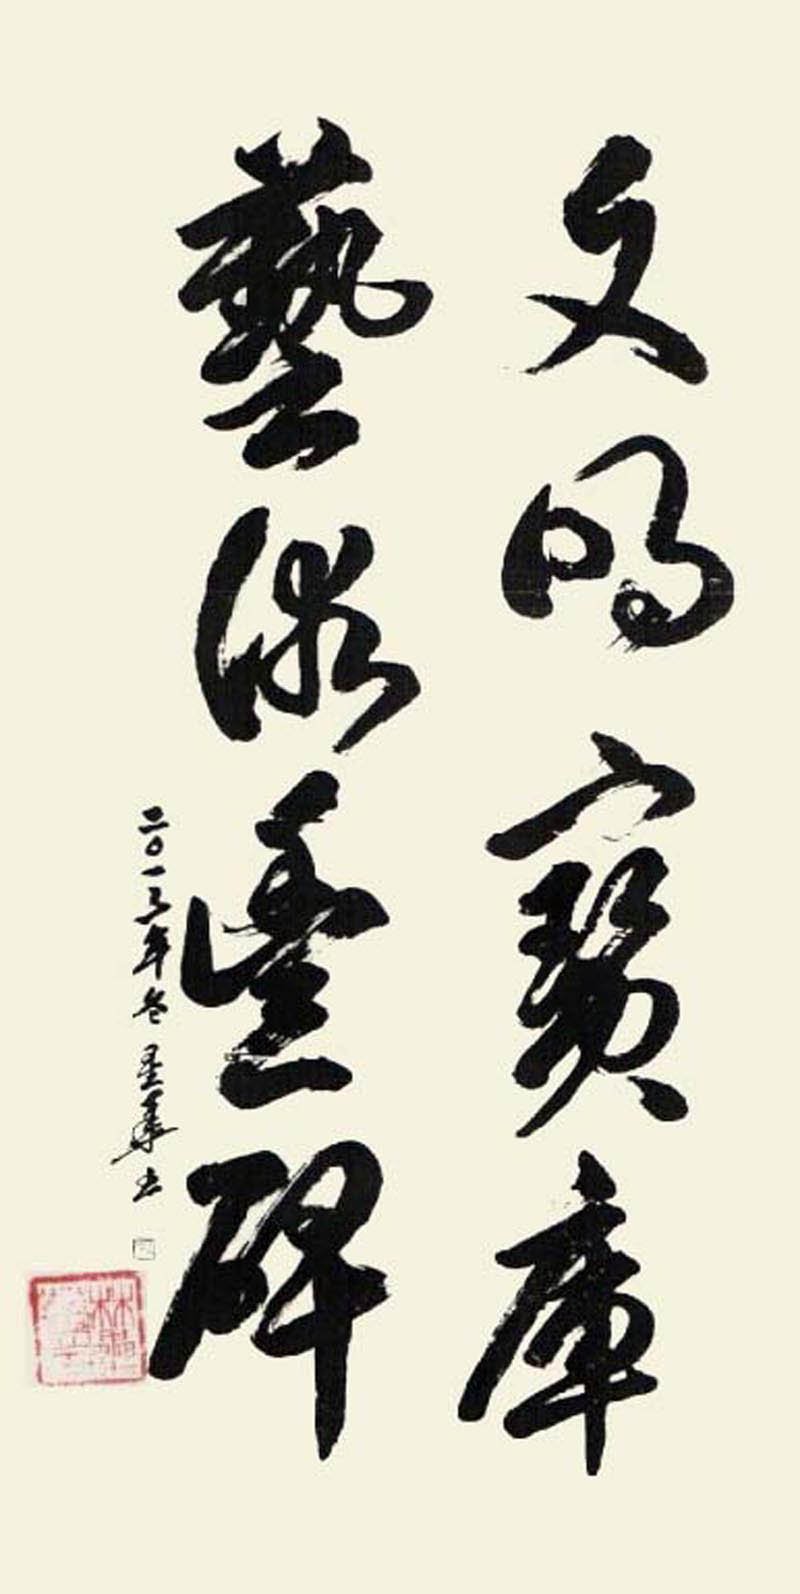 文明寶庫
藝術豐碑
二〇一三年冬 星華書